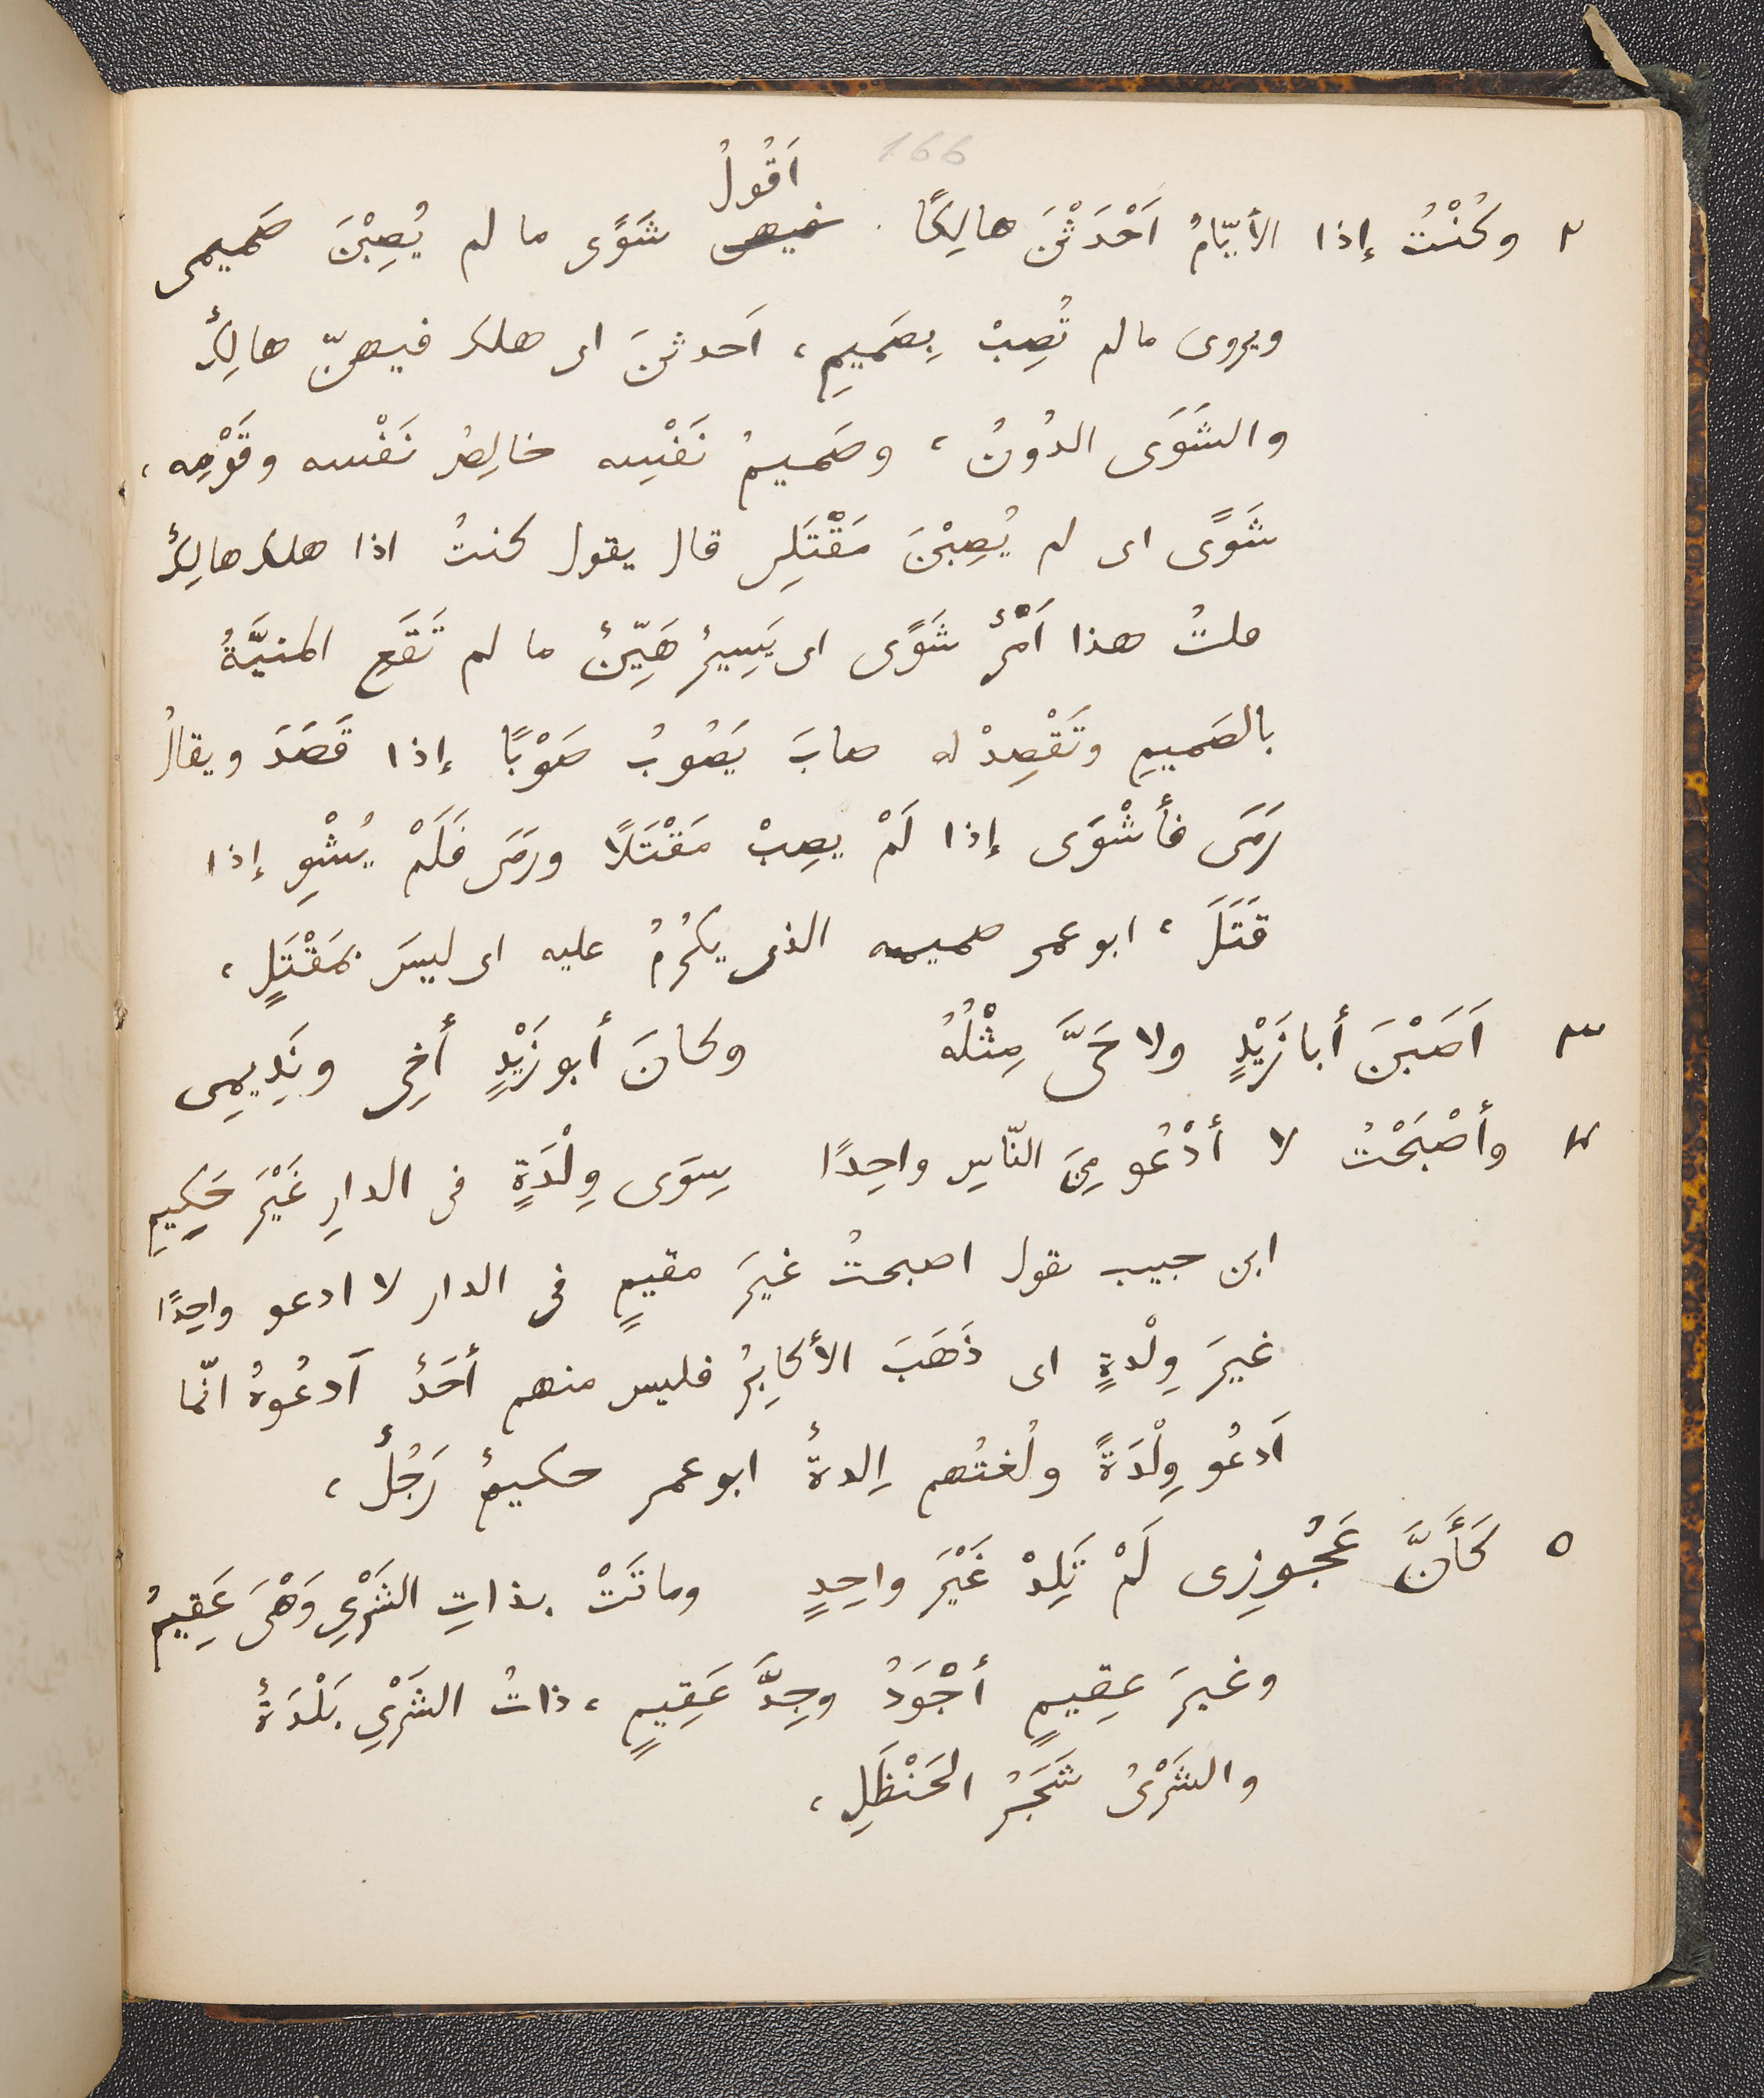 166
اَقُولُ
٢ وكُنْتُ إذا الأيّامُ اَحْدَثْنَ هالِكًا فيهن شَوًى ما لم يُصِبْنَ صَميمى
ويروى ما لم تُصِبْ بِصَميمِ، اَحدثنَ اى هلك فيهنّ هالِكٌ
والشَوَى الدُونُ، وصَميمُ نَفْسِه خالِصُ نَفْسه وقَوْمِه،
شَوًى اى لم يُصِبْنَ مَقْتَلِى قال يقول كنتُ اذا هلك هالِكٌ
قلتُ هذا اَمْرٌ شَوًى اى يَسِيرٌ هَيِّنٌ ما لم تَقَعِ المنيَّةُ
بالصَميمِ وتَقْصِدْ له صابَ يَصُوبُ صَوْبًا إذا قَصَدَ ويقالُ
رَمَى فأشْوَى إذا لَمْ يصِبْ مَقْتَلًا ورَمَى فَلَمْ يُشْوِ إذا
قَتَلَ، ابو عمر صميمه الذى يكرُمُ عليه اى ليسَ بمَقْتَلٍ،
٣ اَصَبْنَ أبا زَيْدٍ ولا حَىَّ مِثْلُهُ وكانَ أبو زَيْدٍ أخِى ونَدِيمِى
٤ وأصْبَحْتُ لا أدْعُو مِنَ النّاسِ واحِدًا سِوَى وِلْدَةٍ فى الدارِ غَيْرَ حَكِيمِ
ابن حبيب يقول اصبحتُ غيرَ مقيمٍ فى الدار لا ادعو واحِدًا
غيرَ وِلْدةٍ اى ذَهَبَ الأكابِرُ فليس منهم أحَدٌ اَدعُوهُ انّما
اَدعُو وِلْدَةً ولُغتُهم اِلدةٌ ابو عمر حكيمٌ رَجُلٌ،
٥ كَأَنَّ عَجُوزِى لَمْ تَلِدْ غَيْرَ واحِدٍ وماتَتْ بذاتِ الشَرْىِ وَهْىَ عَقِيمُ
وغيرَ عقِيمٍ أجْوَدُ وجِدَّ عَقِيمٍ، ذاتُ الشَرْىِ بَلْدَةٌ
والشَرْىُ شَجَرُ الحَنْظَلِ،